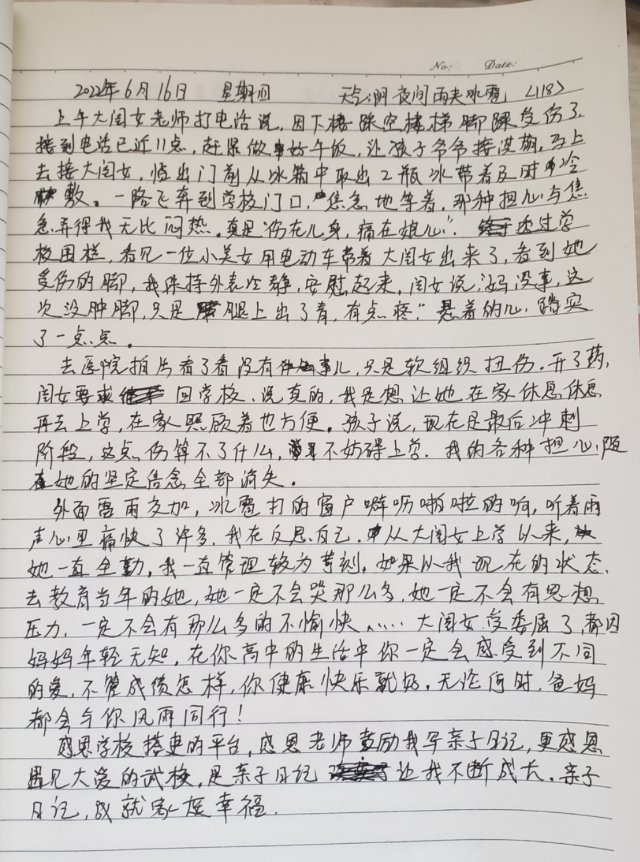 No: Date:
2022年6月16日 星期四 天气:阴 夜间雨夹冰雹 (118)
上午大闺女老师打电话说，因下楼踩空楼梯脚踝受伤了，
接到电话已近11点，赶紧做好午饭，让孩子爷爷接送萌，马上
去接大闺女，临出门前从冰箱中取出2瓶冰带着及时冷
敷。一路飞奔到学校门口，焦急地等着，那种担心与焦
急弄得我无比闷热。真是"伤在儿身，痛在娘心"。透过学
校围栏，看见一位小美女用电动车带着大闺女出来了，看到她
受伤的脚，我保持外表冷静，安慰起来，闺女说："妈没事，这
次没肿脚，只是腿上出了青，有点疼。"悬着的心，踏实
了一点点。
去医院拍片看了看没有事儿，只是软组织扭伤。开了药，
闺女要求回学校。说真的，我是想让她在家休息休息
再去上学，在家照顾着也方便。孩子说，现在是最后冲刺
阶段，这点伤算不了什么，不妨碍上学。我的各种担心，随
着她的坚定信念全部消失。
外面雷雨交加，冰雹打的窗户噼呖啪啦的响，听着雨
声心里痛快了许多，我在反思自己。从大闺女上学以来，
她一直全勤，我一直管理较为苛刻。如果从我现在的状态
去教育当年的她，她一定不会哭那么多，她一定不会有思想
压力，一定不会有那么多的不愉快……大闺女受委屈了，都因
妈妈年轻无知，在你高中的生活中你一定会感受到不同
的爱，不管成绩怎样，你健康快乐就好。无论何时，爸妈
都会与你风雨同行！
感恩学校搭建的平台，感恩老师鼓励我写亲子日记，更感恩
遇见大爱的武校，是亲子日记让我不断成长。亲子
日记，成就家庭幸福.